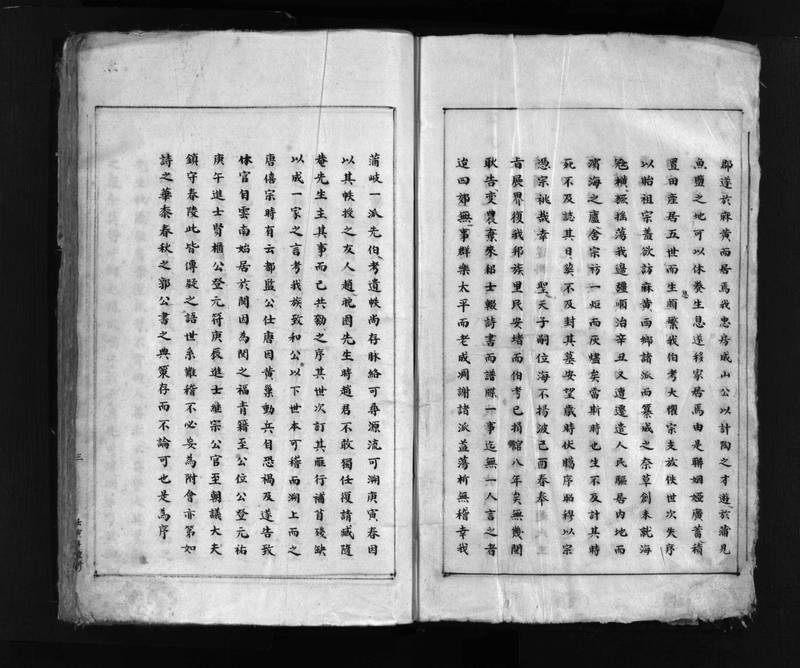 郡遂於麻黃而居焉我忠房成山公以計陶之才遊於蒲見
魚鹽之地可以休養生息遂移家居焉由是聯姻婭廣蓄積
置田產居五世而生齒繁我伯考大懼宗支放佚世次失序
以貽祖宗羞欲訪麻黃而鄉諸派而纂成之奈草創未就海
寇橫搖蕩我邊疆順治辛丑又遭遷遣人民驅居內地而
濱海之廬舍宗祊一炬而灰燼矣當斯時也生不及計其時
死不及誌其日葬不及封其墓安望歲時伏臘序昭穆以宗
憑宗祧哉幸聖天子嗣位海不揚波己酉春奉
旨展界復我邦族里民安堵而伯考已捐館八年矣無幾閩
耿告變農棄耒耜士輟詩書而譜牒一事迄無一人言之者
迨四郊無事群樂太平而老成凋謝諸派蓋蕩析無稽幸我
蒲岐一派先伯考遺帙尚存脉絡可尋源流可溯庚寅春因
以其帙授之友人趙晚圃先生時趙君不敢獨任復請臧隨
菴先生主其事而己共勷之序其世次訂其雁行補首殘缺
以成一家之言考我族致和公以下世本可稽而溯上而之
唐僖宗時有云都監公仕唐因黃巢動兵自恐禍及遂告致
休官自雲南始居於閩因為閩之福青籍至公位公登元祐
庚午進士賢櫃公登元符庚辰進士継宗公官至朝議大夫
鎮守春陵此皆傳疑之語世系難稽不必妄為附會亦第如
詩之華黍春秋之郭公書之典策存而不論可也是為序
三